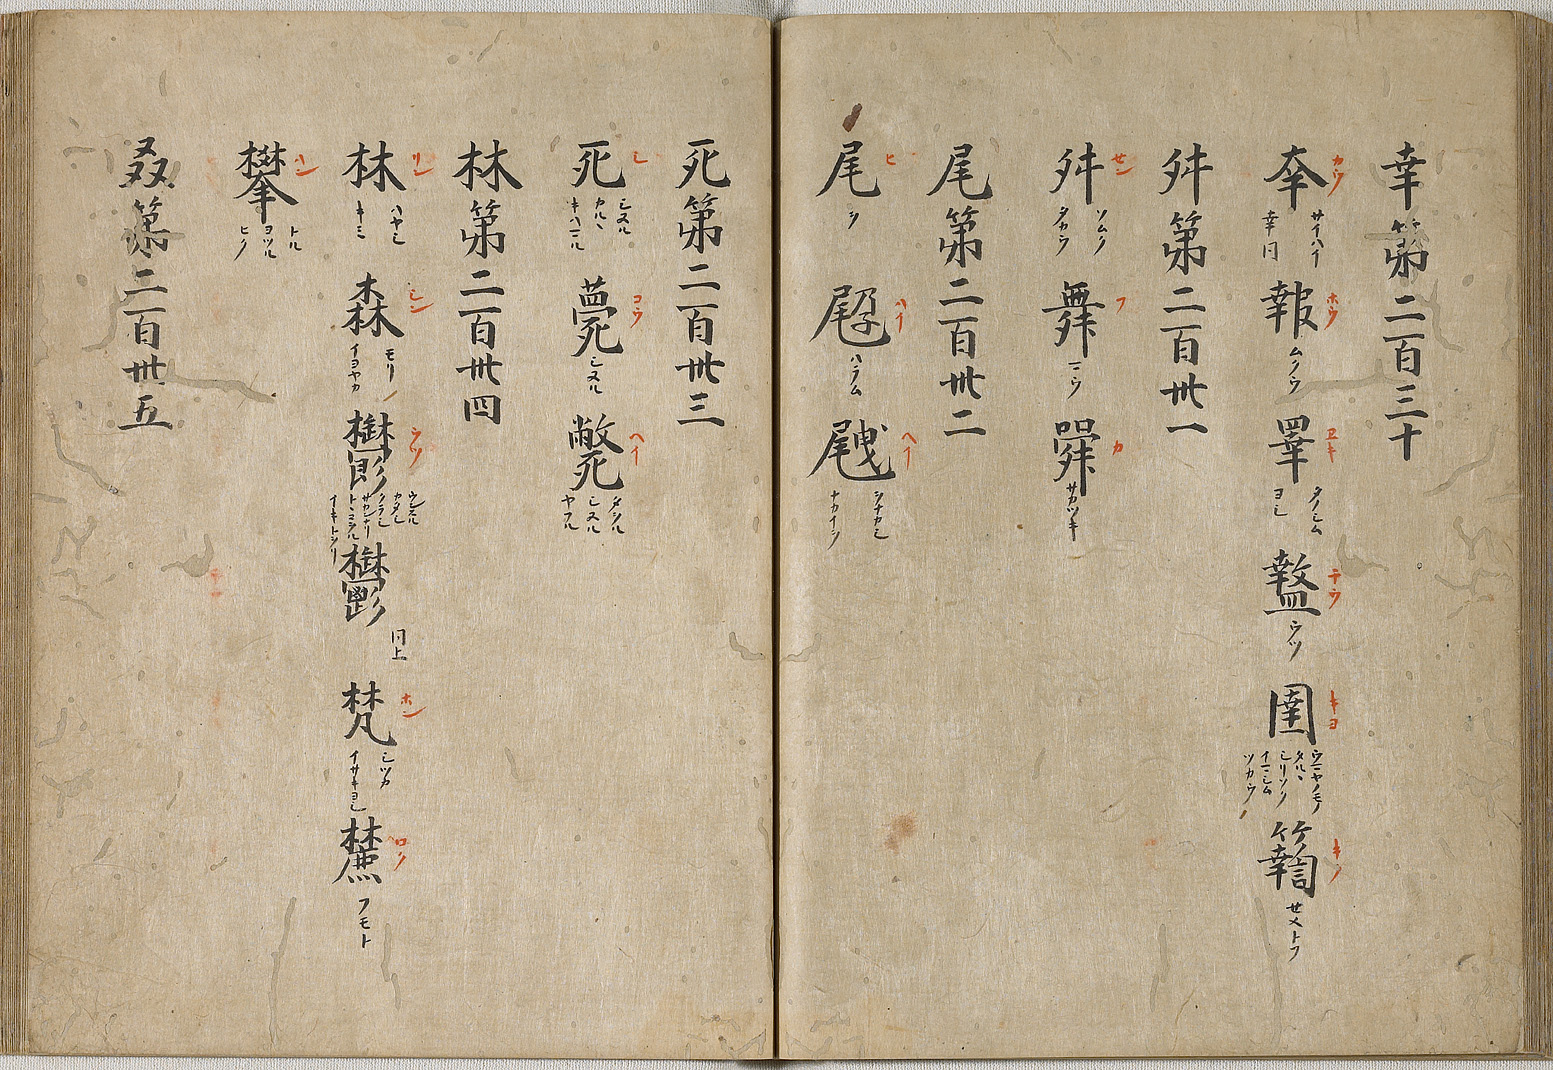 幸第二百三十
㚔 カウ サイハイ 幸同 報 ホウ ムクウ 睪 ヱキ タノシム ヨシ 盩 チウ ウツ 圉 キヨ ウマヤノモノ タルヽ シリソク イマシム ツカウ キク セメトフ
舛第二百卅一
舛 セン ソムク タカウ 舞 フ マウ カ サカツキ
尾第二百卅二
尾 ヒ ヲ ハイ ハラム ヘイ
死第二百卅三
死 シ シヌル カルヽ キハマル 薨 コウ シヌル 斃 ヘイ タヲル シヌル ヤフル
林第二百卅四
林 リン ハヤシ キミ 森 シン モリ イヨヤカ 欝 ウツ サカンナリ イキトヲリ 鬱 同上 梵 ホン シツカ イサキヨシ ロク フモト
攀 ハン トル ヨツル ヒク
叒第二百卅五